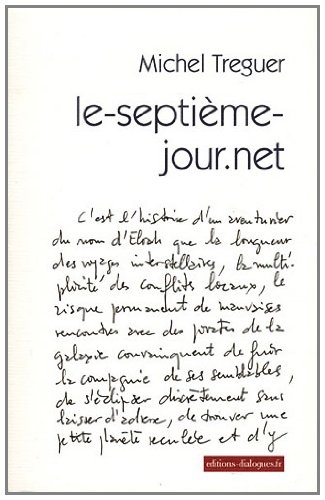 Michel Treguer
le-septième-
jour.net
C'est l'histoire d'un aventurier
du nom d'Eloah que la longueur
des voyages interstellaires, la multi-
plicité des conflits locaux, le
risque permanent de mauvaises
rencontres avec des pirates de la
galaxie convainquent de fuir
la compagnie de ses semblables,
de s'éclipser discrètement sans
laisser d'adresse, de trouver une
petite planète reculée et d'y
editions-dialogues.fr